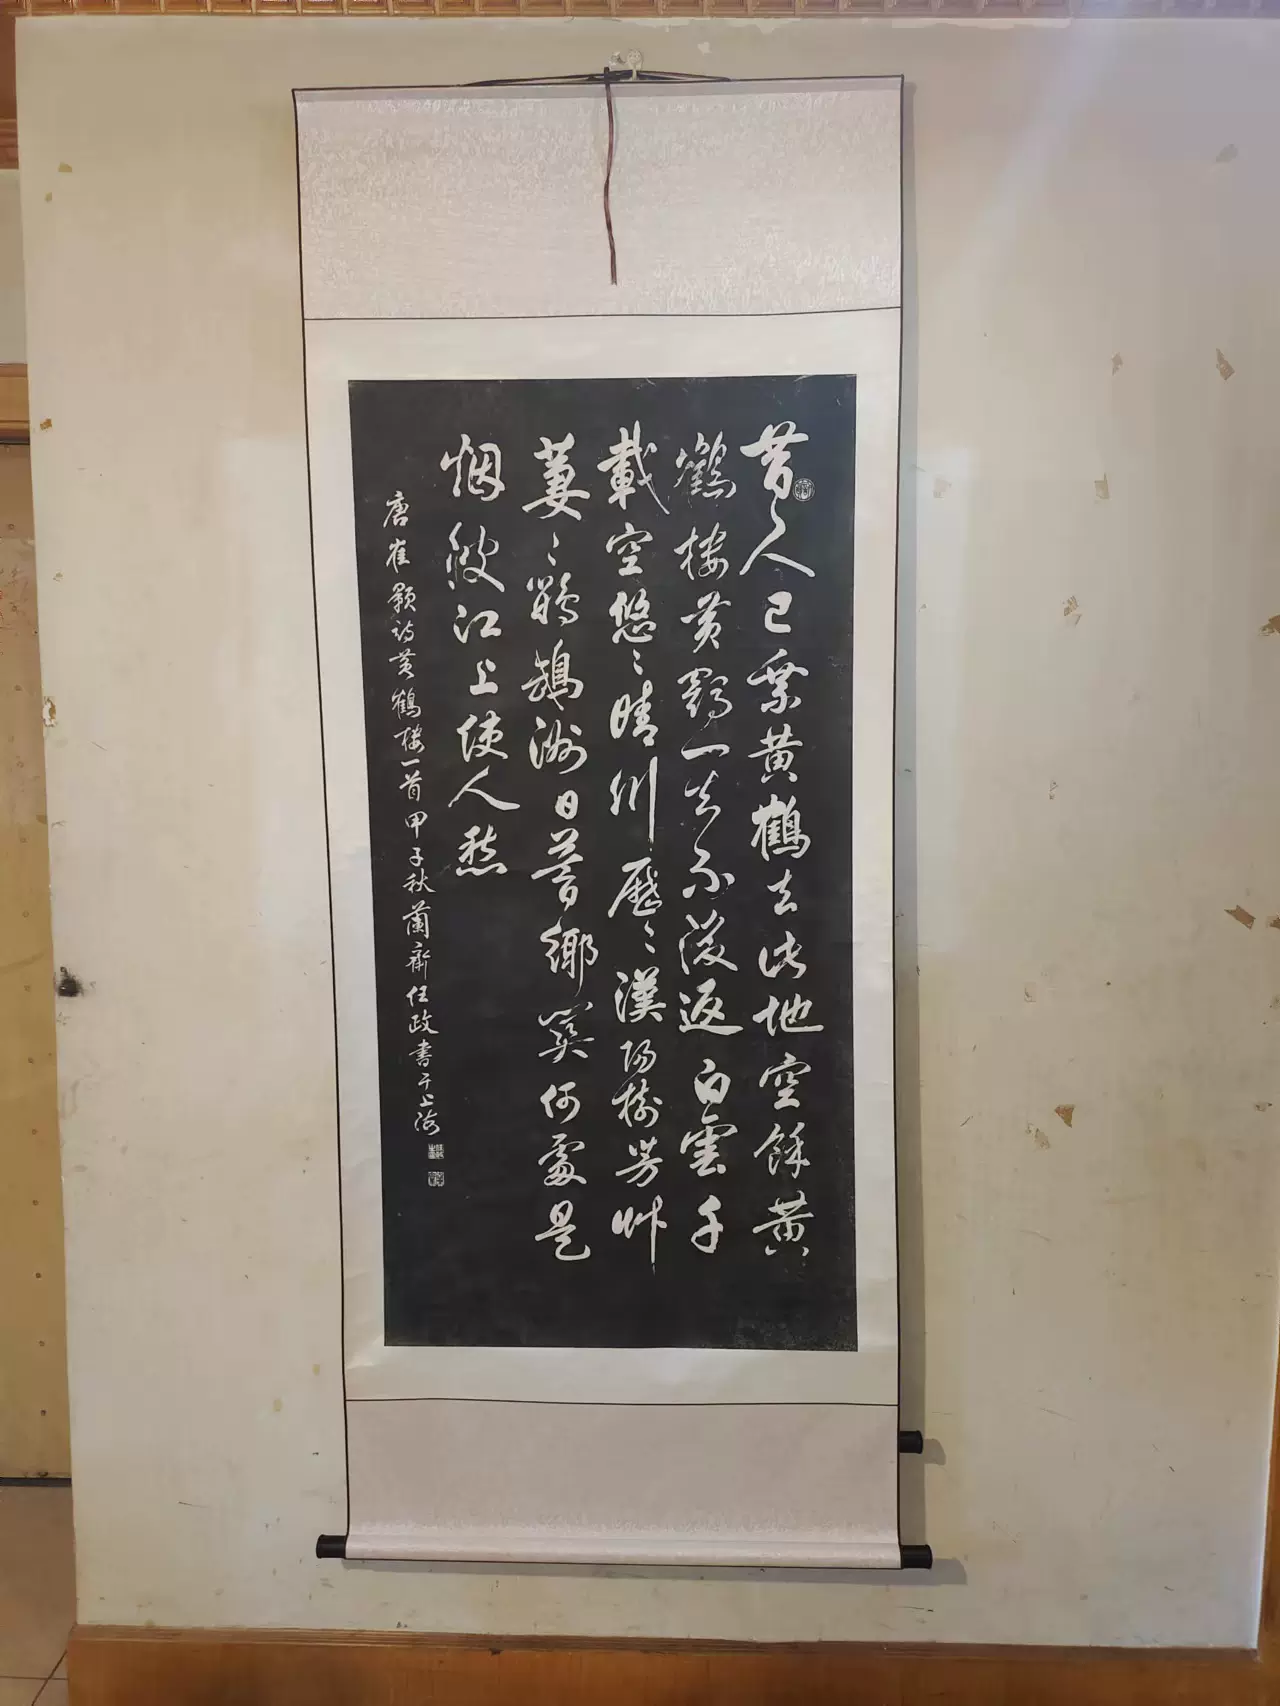 昔人已乗黄鶴去此地空餘黄
鶴楼黄鶴一去不復返白雲千
載空悠〻晴川歷〻漢陽樹芳艸
萋〻鸚鵡洲日暮鄉関何處是
烟波江上使人愁
唐崔顥詩黄鶴楼一首甲子秋蘭齋任政書于上海